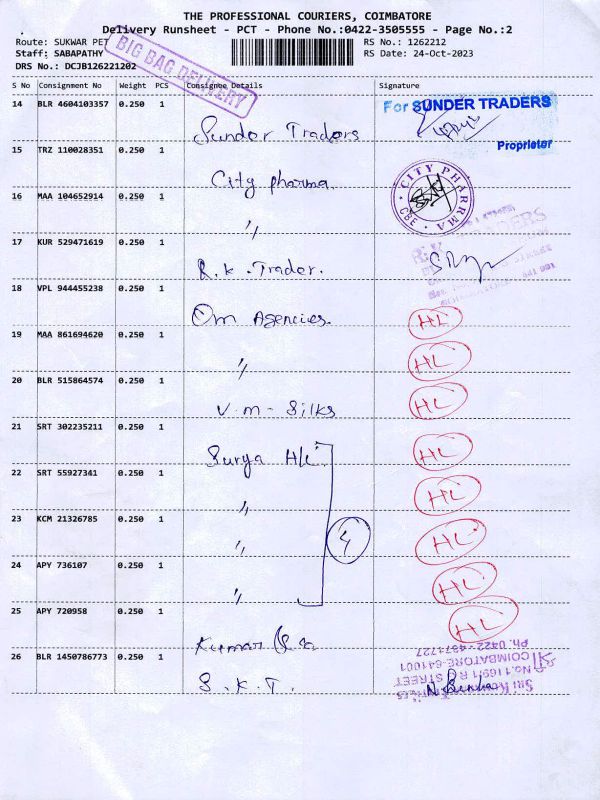 THE PROFESSIONAL COURIERS, COIMBATORE
Delivery Runsheet - PCT - Phone No.:0422-3505555 - Page No.:2
Route: SUKWAR PET
RS No.: 1262212
Staff: SABAPATHY
RS Date: 24-Oct-2023
DRS No.: DCJB126221202
BIG BAG DELIVERY
S No Consignment No Weight PCS Consignee Details Signature
14 BLR 4604103357 0.250 1
Sunder Traders
For SUNDER TRADERS
Proprietor
15 TRZ 110028351 0.250 1
City pharma
CITY PHARMA
CBE
16 MAA 104652914 0.250 1
"
17 KUR 529471619 0.250 1
R.K. Trader.
18 VPL 944455238 0.250 1
Om Agencies.
HL
19 MAA 861694620 0.250 1
"
HL
20 BLR 515864574 0.250 1
V.m - Silks
HL
21 SRT 302235211 0.250 1
Surya HL
HL
22 SRT 55927341 0.250 1
"
HL
23 KCM 21326785 0.250 1
"
4
HL
24 APY 736107 0.250 1
"
HL
25 APY 720958 0.250 1
Kumar
HL
26 BLR 1450786773 0.250 1
S.K.T.
Ph. 0422 - 4371727
COIMBATORE-641001
STREET